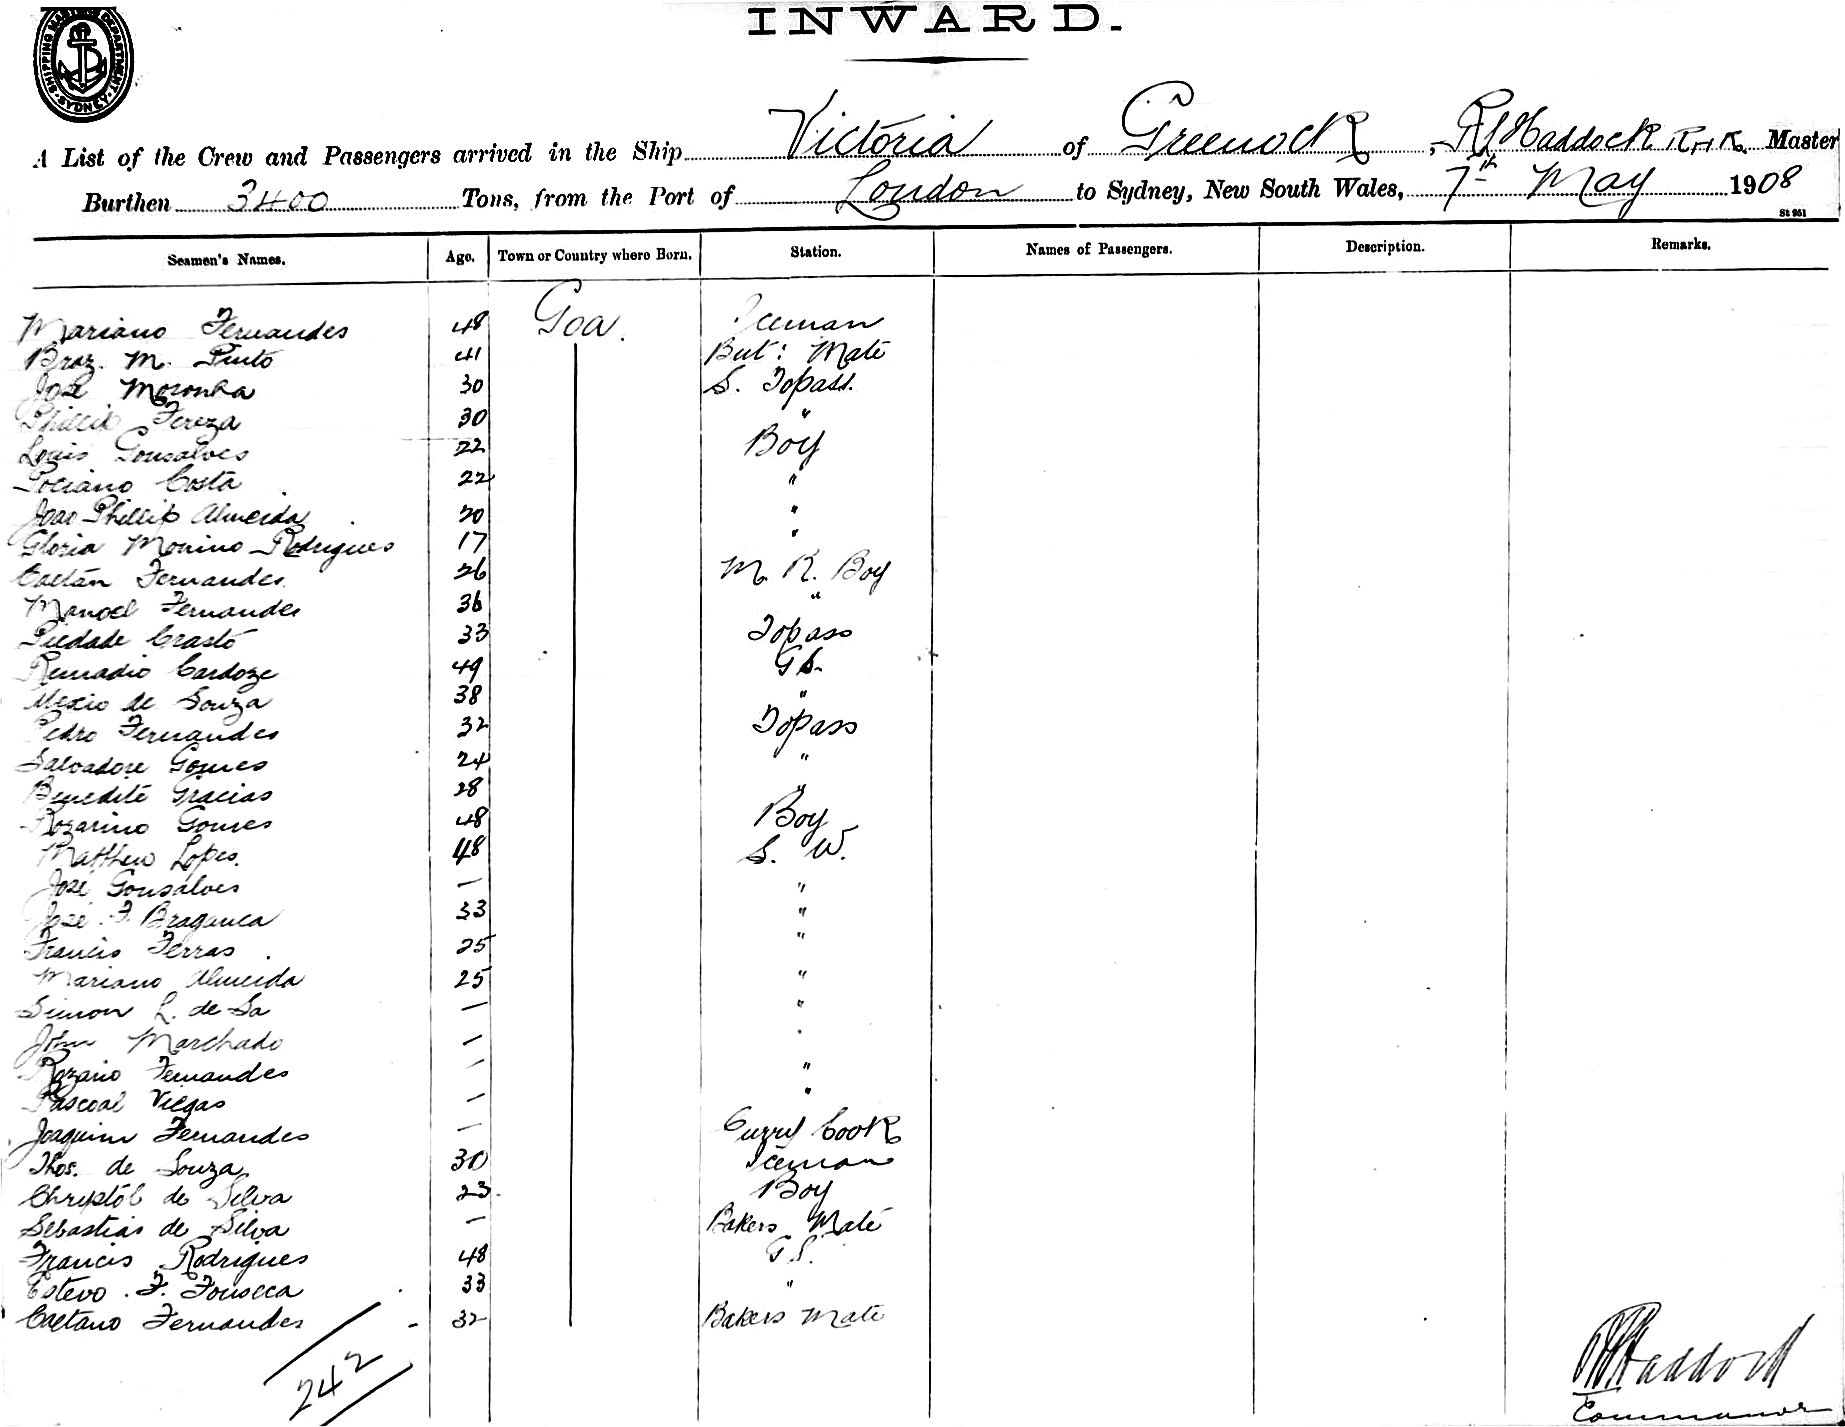 INWARD.
SHIPPING MASTERS DEPARTMENT SYDNEY
A List of the Crew and Passengers arrived in the Ship Victoria of Greenock, Haddock R.N.R. Master
Burthen 3400 Tons, from the Port of London to Sydney, New South Wales, 7th May 1908
St 951
Seamen's Names. Age. Town or Country where Born. Station. Names of Passengers. Description. Remarks.
Mariano Fernandes 48 Goa. Iceman
Braz. M. Pinto 41 But: Mate
José Moronha 30 S. Topass.
Phillip Fereza 30 "
Louis Gonsalves 22 Boy
Lociano Costa 22 "
Joao Phillip Almeida 20 "
Gloria Monino Rodrigues 17 "
Caetan Fernandes 26 M. R. Boy
Manoel Fernandes 36 "
Piedade Crasto 33 Topass
Remadio Cardoze 49 G S.
Alexio de Souza 38 "
Pedro Fernandes 32 Topass
Salvadore Gomes 24 "
Benedite Gracias 28 "
Rozarino Gomes 48 Boy
Matthew Lopes. 48 S. W.
José Gonsalves — "
José F. Braganca 33 "
Francis Ferras 25 "
Mariano Almeida 25 "
Simon L. de Sa — "
John Marchado — "
Rozario Fernandes — "
Pascoal Viegas — "
Joaquim Fernandes — Curry Cook
Thos. de Souza 30 Iceman
Chrystób de Silva 23 Boy
Sebastias de Silva — Bakers Mate
Francis Rodrigues 48 G S.
Estevo F. Fonseca 33 "
Caetano Fernandes 32 Bakers Mate
242
Haddock
Commander